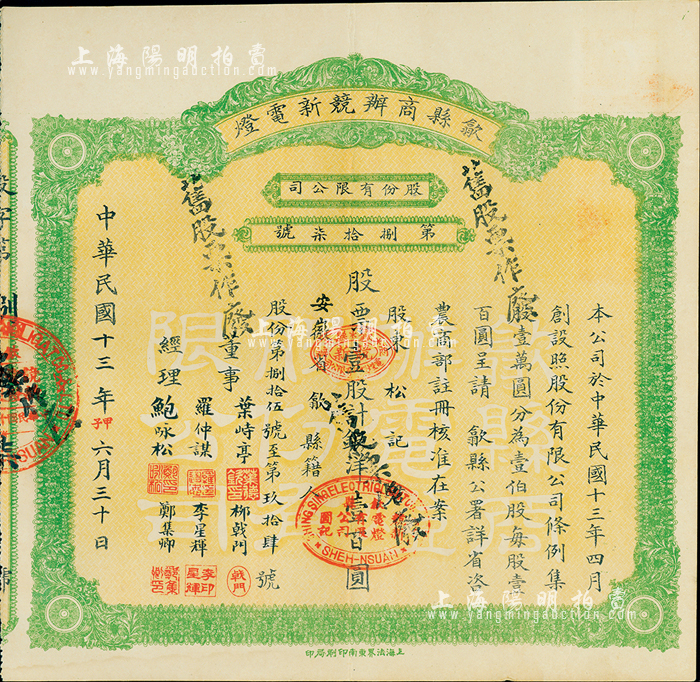 上海陽明拍賣
www.yangmingauction.com
歙縣商辦競新電燈
股份有限公司
第捌拾柒號
本公司於中華民國十三年四月
創設照股份有限公司條例集
股壹萬圓分為壹伯股每股壹
百圓呈請 歙縣公署詳省咨
農商部註冊核准在案
股東 松記
安徽省歙縣籍人
股票壹股計銀洋壹百圓
股份第捌拾伍號至第玖拾肆號
董事 葉峙亭 柳戟門
羅仲謀 李星輝
經理 鮑咏松 鄭集卿
中華民國十三年甲子六月三十日
舊股票作廢
舊股票作廢
SHEH-HSUAN
李星輝印
戟門
上海法界東南印刷局印
上海陽明拍賣
www.yangmingauction.com